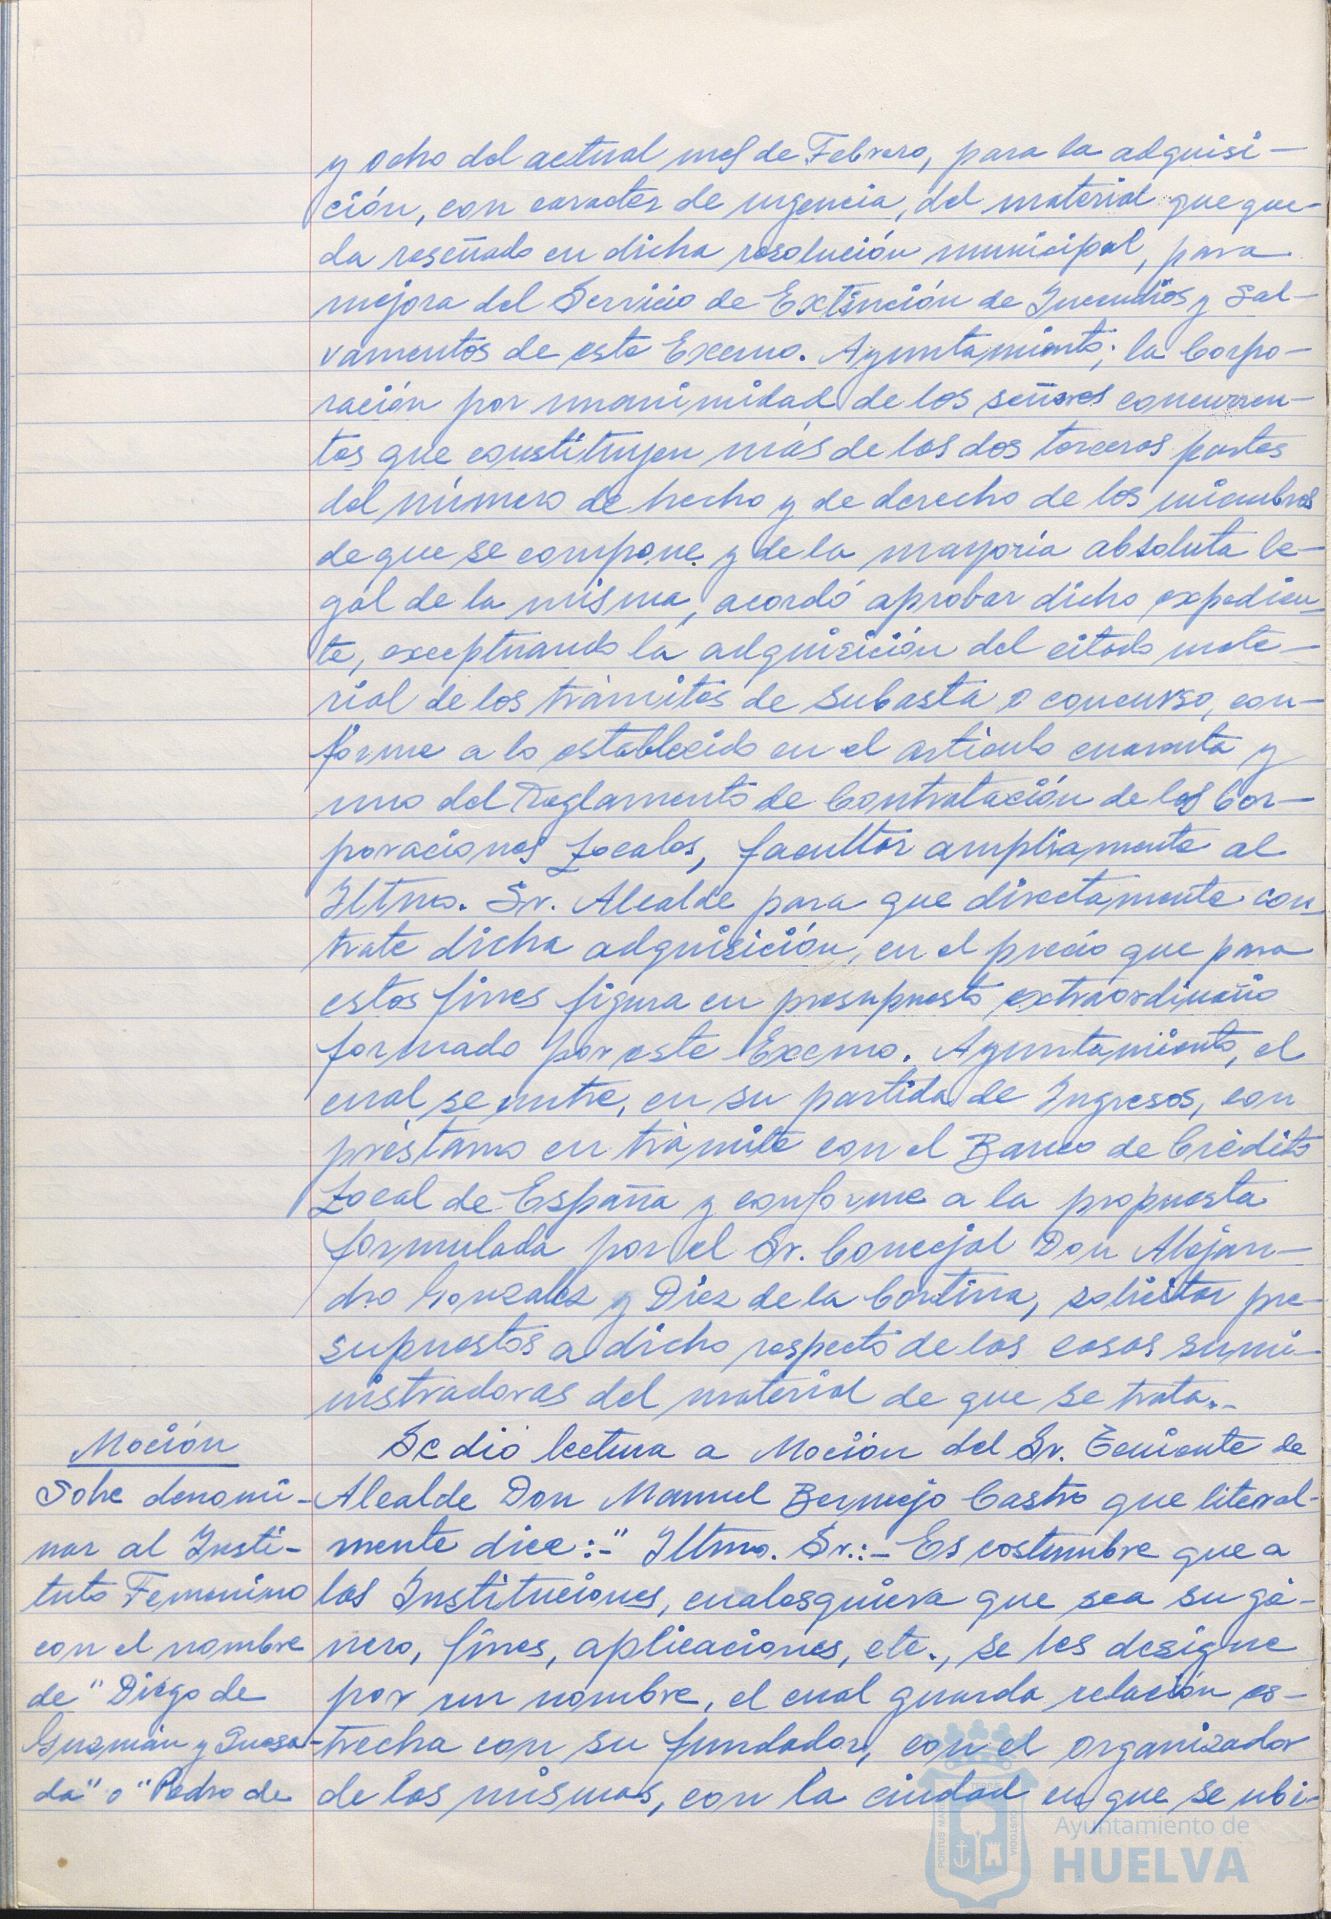 y ocho del actual mes de Febrero, para la adquisi-
ción, con caracter de urgencia, del material que que-
da reseñado en dicha resolución municipal, para
mejora del Servicio de Extinción de Incendios y Sal-
vamentos de este Excmo. Ayuntamiento; la Corpo-
ración por unanimidad de los señores concurren-
tes que constituyen más de las dos terceras partes
del número de hecho y de derecho de los miembros
de que se compone y de la mayoría absoluta le-
gal de la misma, acordó aprobar dicho expedien-
te, exceptuando la adquisición del citado mate-
rial de los trámites de subasta o concurso, con-
forme a lo establecido en el artículo cuarenta y
uno del Reglamento de Contratación de las Cor-
poraciones Locales, facultar ampliamente al
Iltmo. Sr. Alcalde para que directamente con-
trate dicha adquisición, en el precio que para
estos fines figura en presupuesto extraordinario
formado por este Excmo. Ayuntamiento, el
cual se nutre, en su partida de Ingresos, con
préstamo en trámite con el Banco de Crédito
Local de España y conforme a la propuesta
formulada por el Sr. Concejal Don Alejan-
dro González y Díez de la Cortina, solicitar pre-
supuestos a dicho respecto de las casas sumi-
nistradoras del material de que se trata.-
Moción
Sobre denomi-
nar al Insti-
tuto Femenino
con el nombre
de "Diego de
Guzmán y Quesa-
da" o "Pedro de
Se dió lectura a Moción del Sr. Teniente de
Alcalde Don Manuel Bermejo Castro que literal-
mente dice:-" Iltmo. Sr.:- Es costumbre que a
las Instituciones, cualesquiera que sea su gé-
nero, fines, aplicaciones, etc., se les designe
por un nombre, el cual guarda relación es-
trecha con su fundador, con el organizador
de las mismas, con la ciudad en que se ubi-
Ayuntamiento de
HUELVA